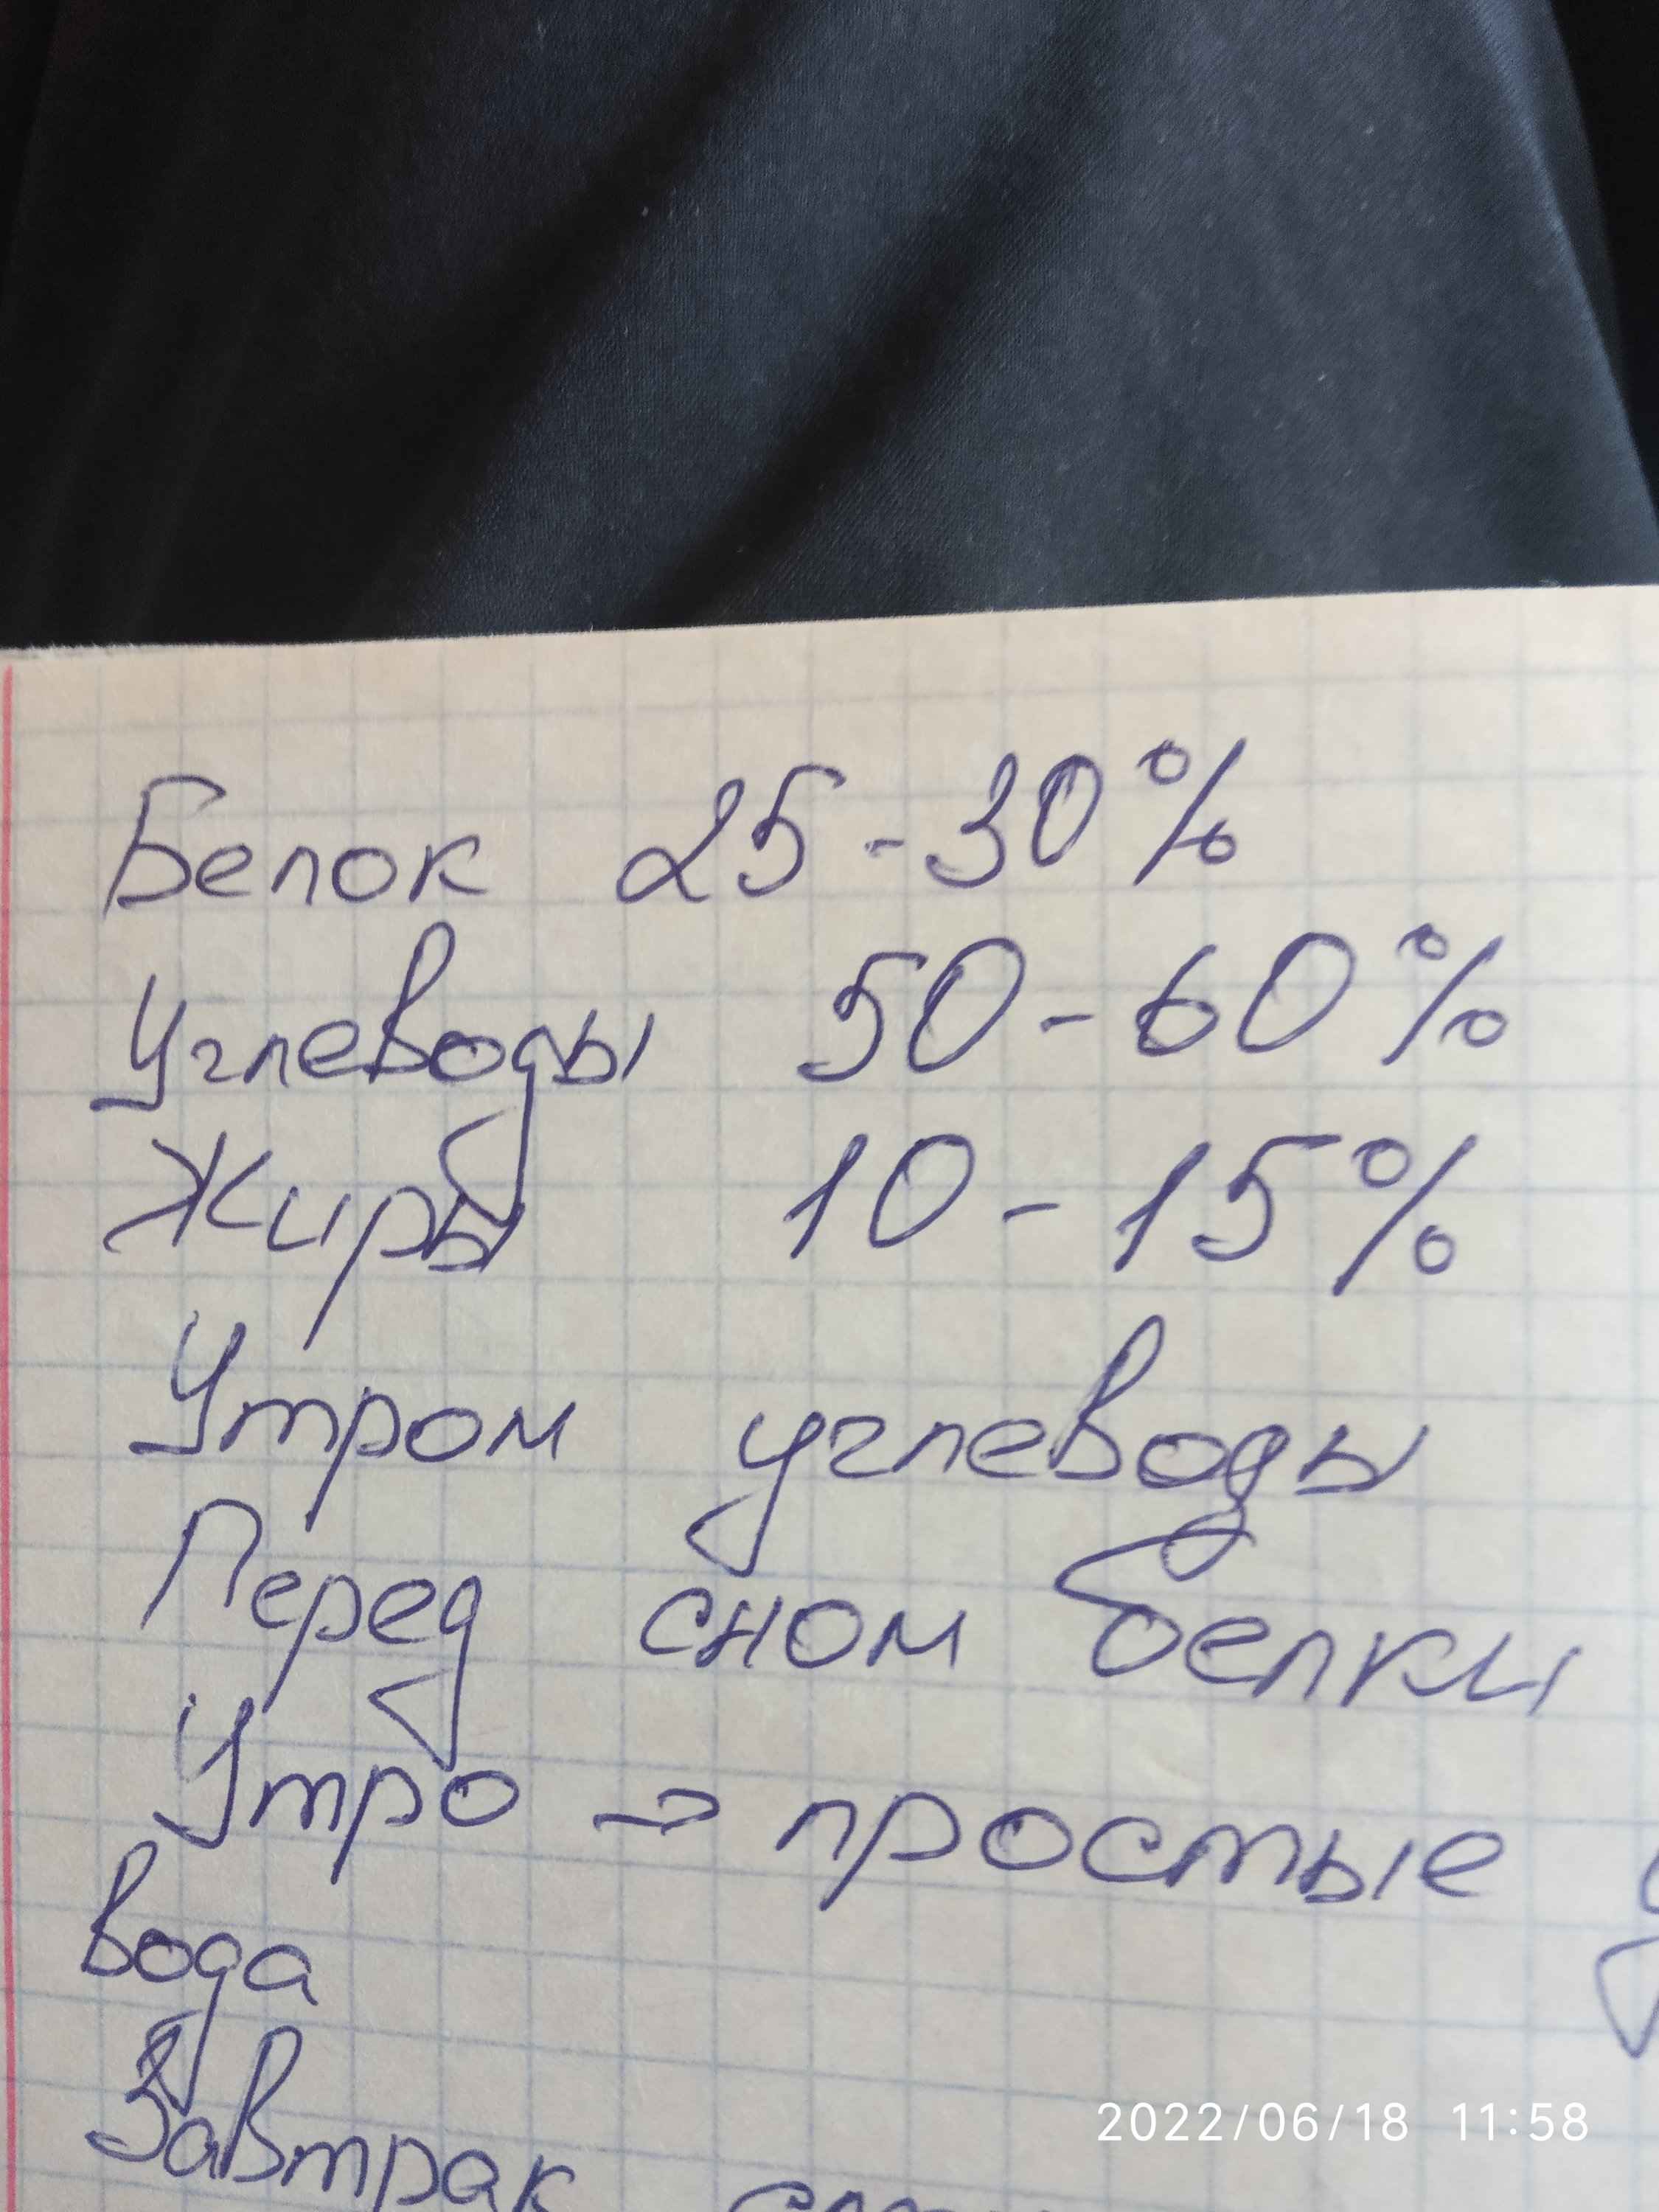 Белок 25-30%
Углеводы 50-60%
Жиры 10-15%
Утром углеводы
Перед сном белки
Утро → простые
вода
Завтрак
2022/06/18 11:58